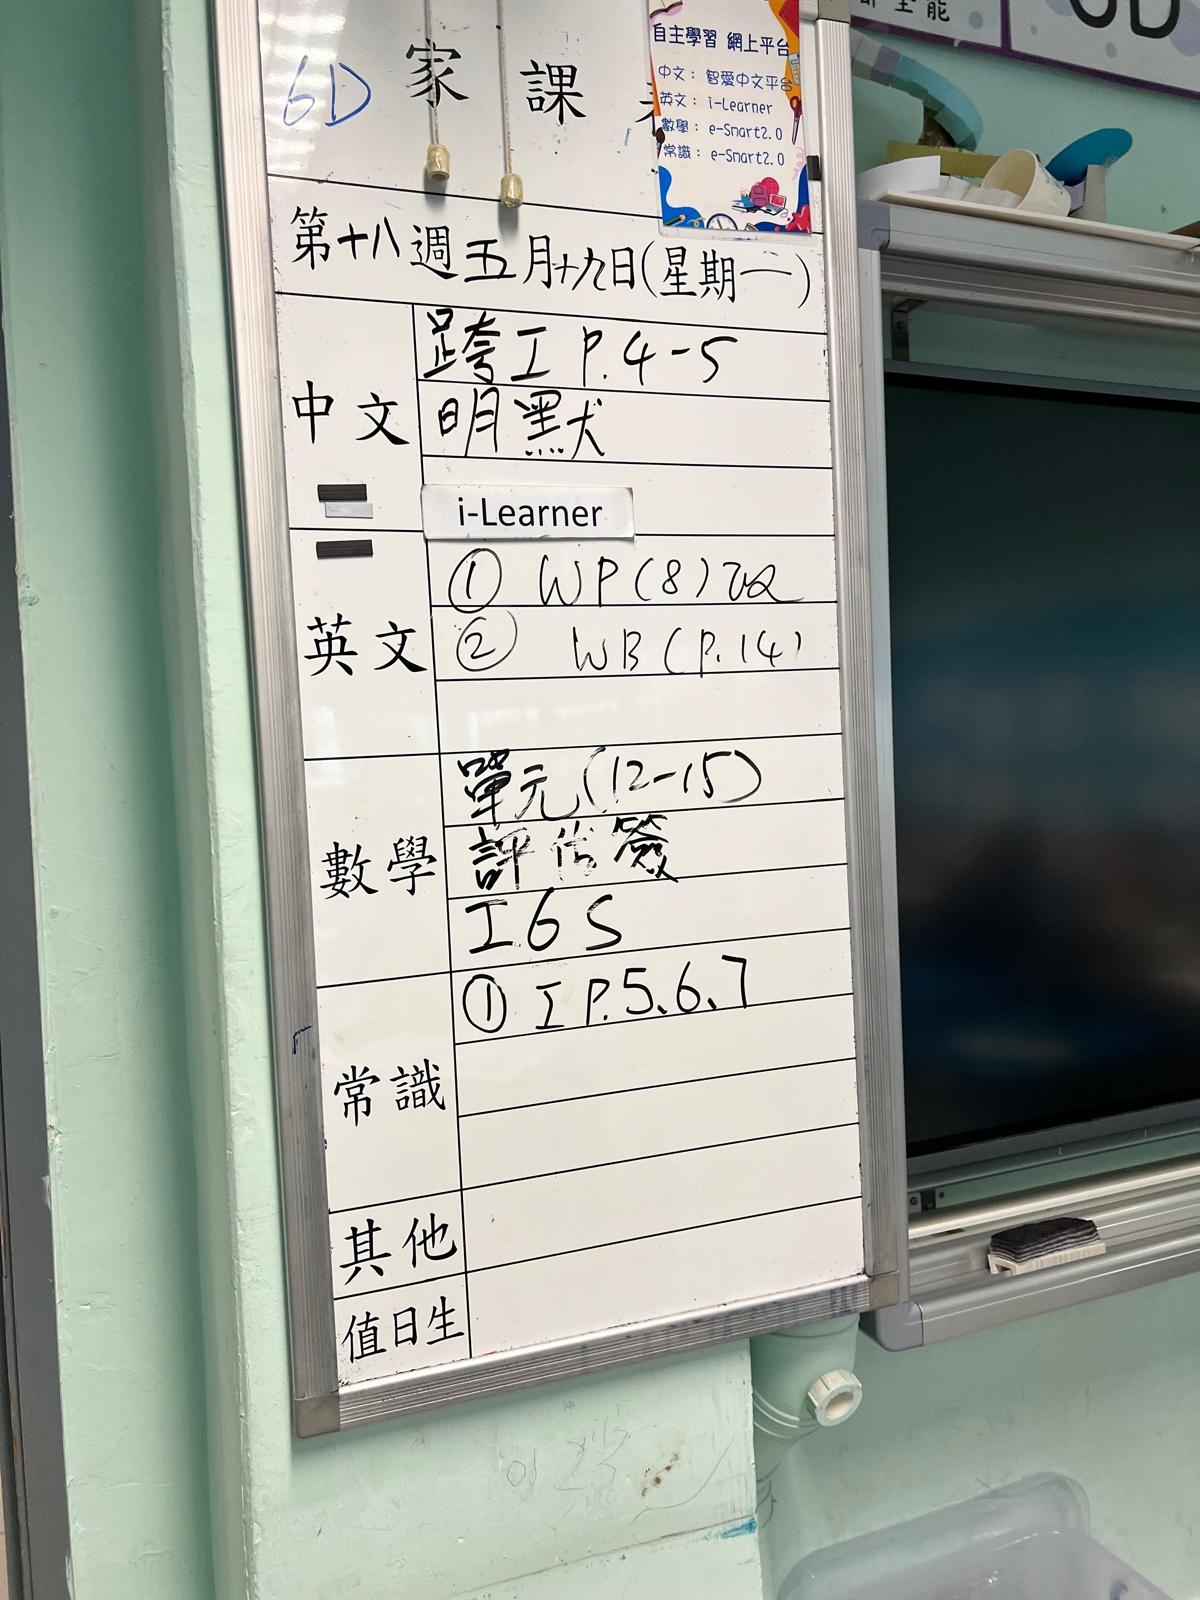 部 全 能
6D
6D 家 課
自主學習 網上平台
中文： 智愛中文平台
英文： i-Learner
數學： e-Smart2.0
常識： e-Smart2.0
第十八週五月十九日(星期一)
中文
跨工 P.4-5
明默
i-Learner
英文
① WP(8)
② WB (P.14)
數學
單元(12-15)
評估簽
工6S
常識
① 工 P.5、6、7
其他
值日生